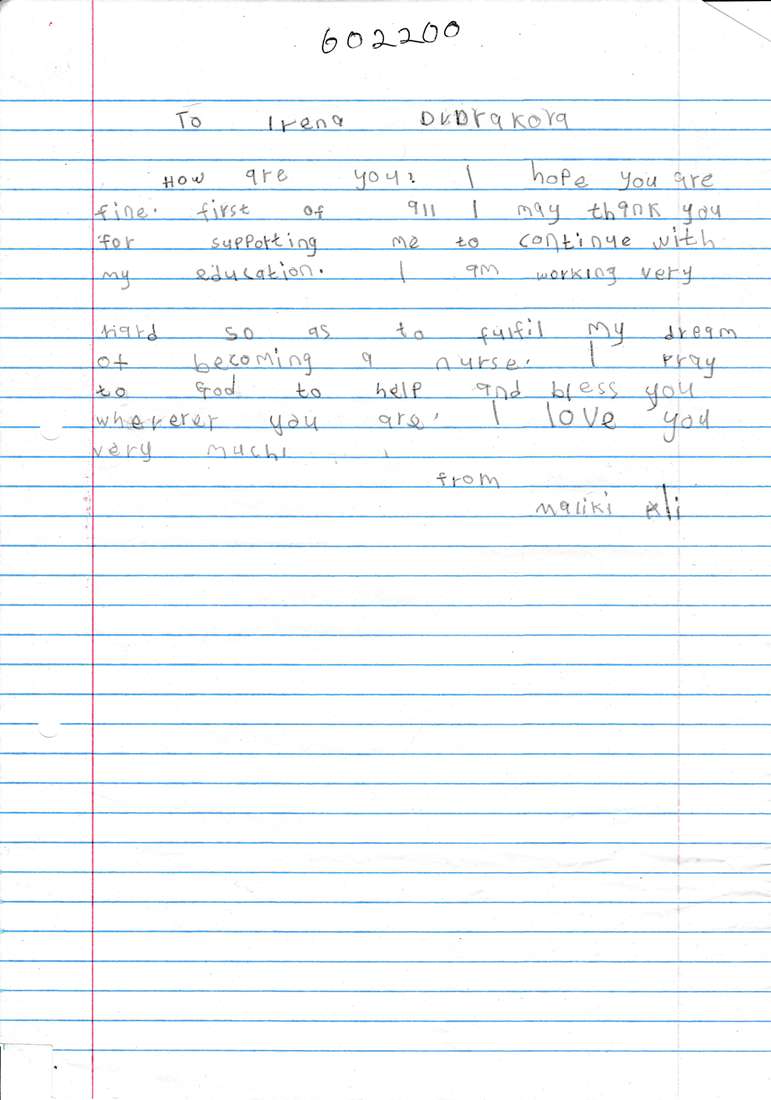 602200
To Irena Dvorakova
How are you? I hope you are
fine. first of all I may thank you
for supporting me to continue with
my education. I am working very
hard so as to fulfil my dream
of becoming a nurse. I pray
to God to help and bless you
wherever you are. I love you
very much!
from
Maliki Ali